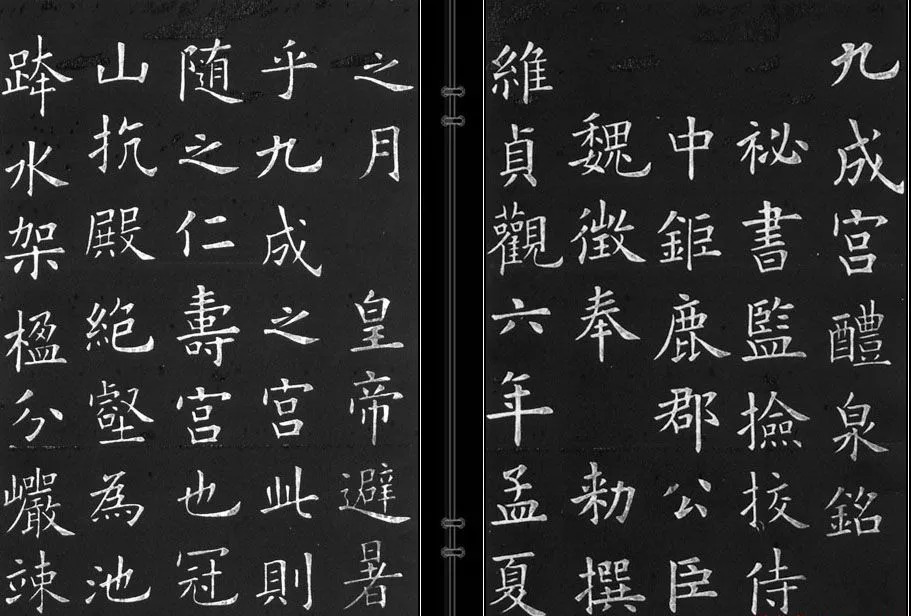 九成宫醴泉銘
祕書監撿挍侍
中鉅鹿郡公臣
魏徵奉勑撰
維貞觀六年孟夏
之月皇帝避暑
乎九成之宫此則
随之仁壽宫也冠
山抗殿絶壑為池
跨水架楹分巖竦